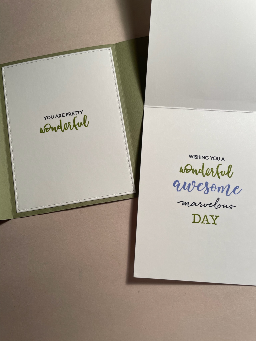 YOU ARE PRETTY
wonderful
WISHING YOU A
wonderful
awesome
marvelous
DAY